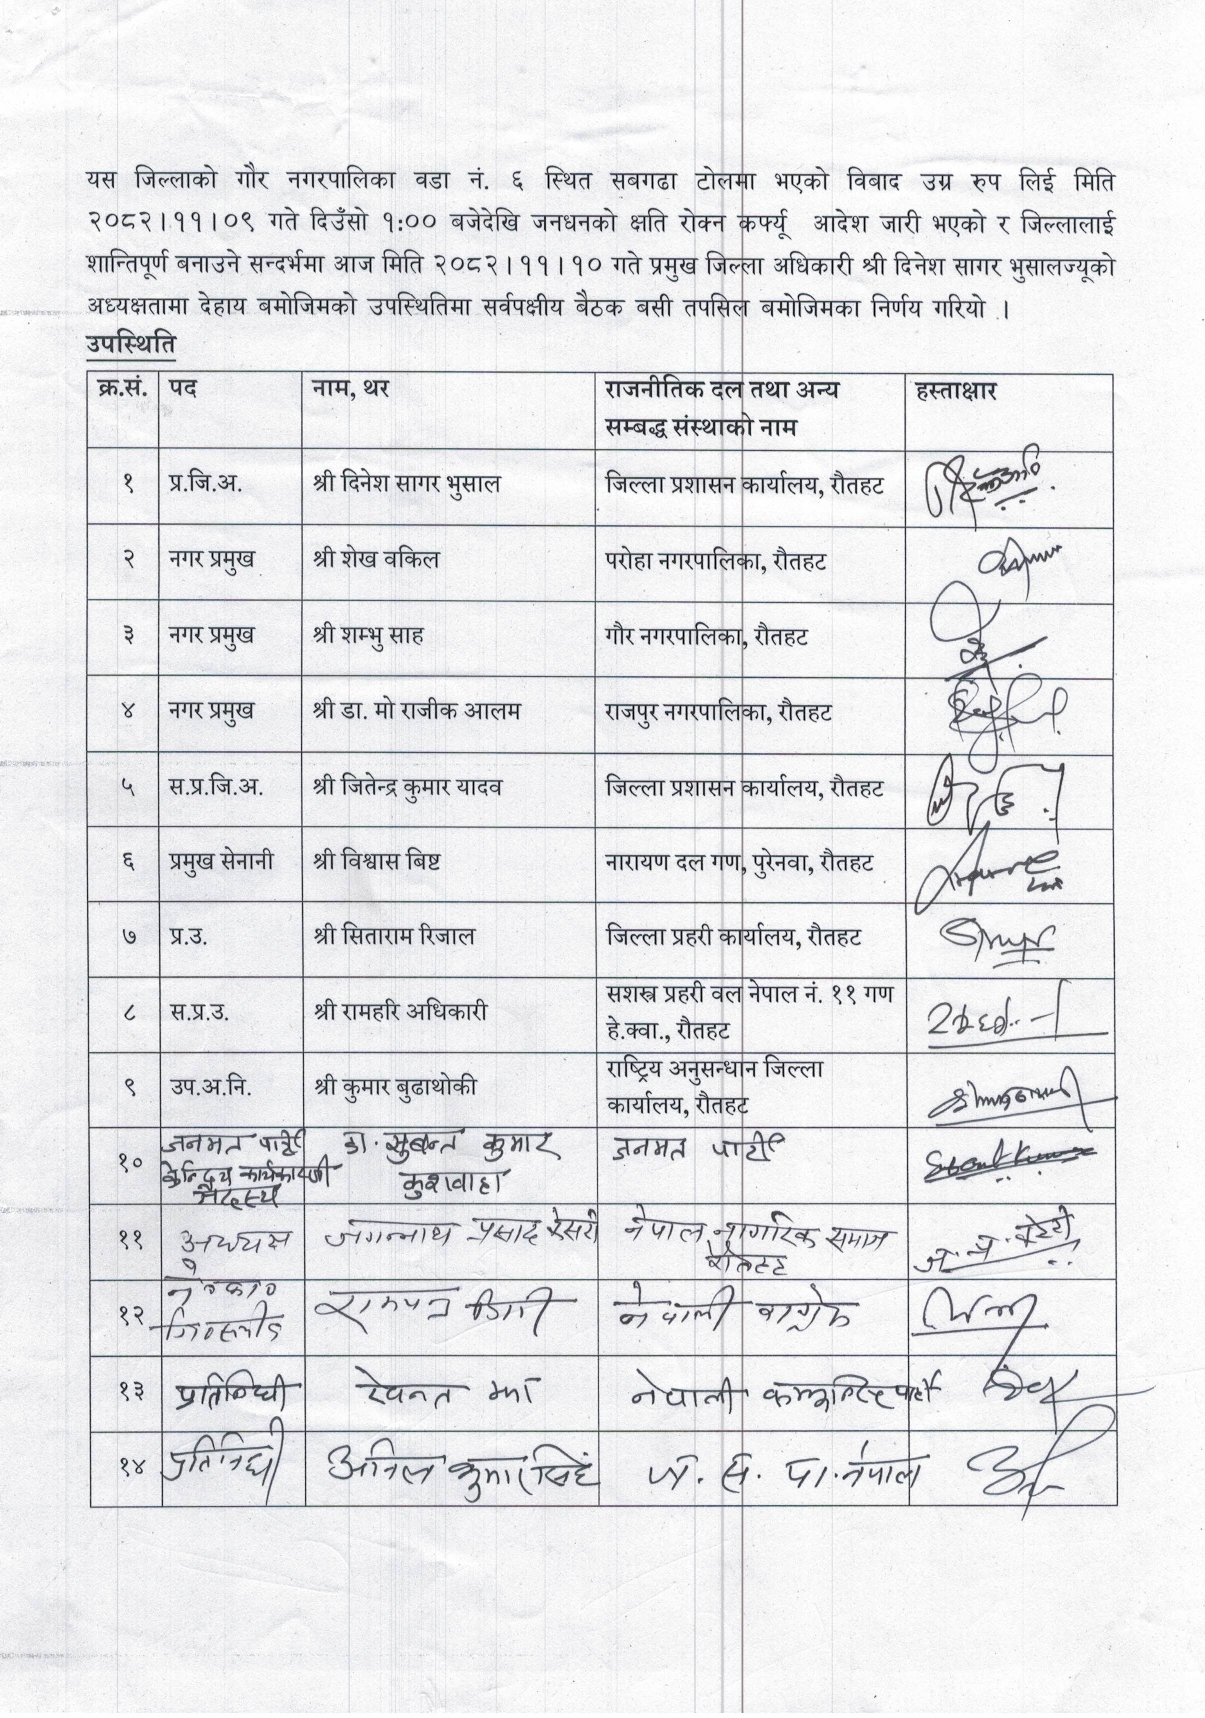 यस जिल्लाको गौर नगरपालिका वडा नं. ६ स्थित सबगढा टोलमा भएको विबाद उग्र रुप लिई मिति
२०८२।११।०९ गते दिउँसो १:०० बजेदेखि जनधनको क्षति रोक्न कर्फ्यू आदेश जारी भएको र जिल्लालाई
शान्तिपूर्ण बनाउने सन्दर्भमा आज मिति २०८२।११।१० गते प्रमुख जिल्ला अधिकारी श्री दिनेश सागर भुसालज्यूको
अध्यक्षतामा देहाय बमोजिमको उपस्थितिमा सर्वपक्षीय बैठक बसी तपसिल बमोजिमका निर्णय गरियो ।
उपस्थिति
क्र.सं. पद नाम, थर राजनीतिक दल तथा अन्य हस्ताक्षार
सम्बद्ध संस्थाको नाम
१ प्र.जि.अ. श्री दिनेश सागर भुसाल जिल्ला प्रशासन कार्यालय, रौतहट
२ नगर प्रमुख श्री शेख वकिल परोहा नगरपालिका, रौतहट
३ नगर प्रमुख श्री शम्भु साह गौर नगरपालिका, रौतहट
४ नगर प्रमुख श्री डा. मो राजीक आलम राजपुर नगरपालिका, रौतहट
५ स.प्र.जि.अ. श्री जितेन्द्र कुमार यादव जिल्ला प्रशासन कार्यालय, रौतहट
६ प्रमुख सेनानी श्री विश्वास बिष्ट नारायण दल गण, पुरेनवा, रौतहट
७ प्र.उ. श्री सिताराम रिजाल जिल्ला प्रहरी कार्यालय, रौतहट
८ स.प्र.उ. श्री रामहरि अधिकारी सशस्त्र प्रहरी वल नेपाल नं. ११ गण
हे.क्वा., रौतहट
९ उप.अ.नि. श्री कुमार बुढाथोकी राष्ट्रिय अनुसन्धान जिल्ला
कार्यालय, रौतहट
१० जनमत पार्टी डा. सुबन्त कुमार जनमत पार्टी
केन्द्रिय कार्यकारणी कुशवाहा
सदस्य
११ अध्यक्ष जगन्नाथ प्रसाद केसरी नेपाल नागरिक समाज
रौतहट
१२ ने०का० नेपाली काग्रेस
१३ प्रतिनिधी रेवन्त झा नेपाली कम्युनिस्ट पार्टी
१४ प्रतिनिधी अनिल कुमार सिंह ज. स. पा. नेपाल